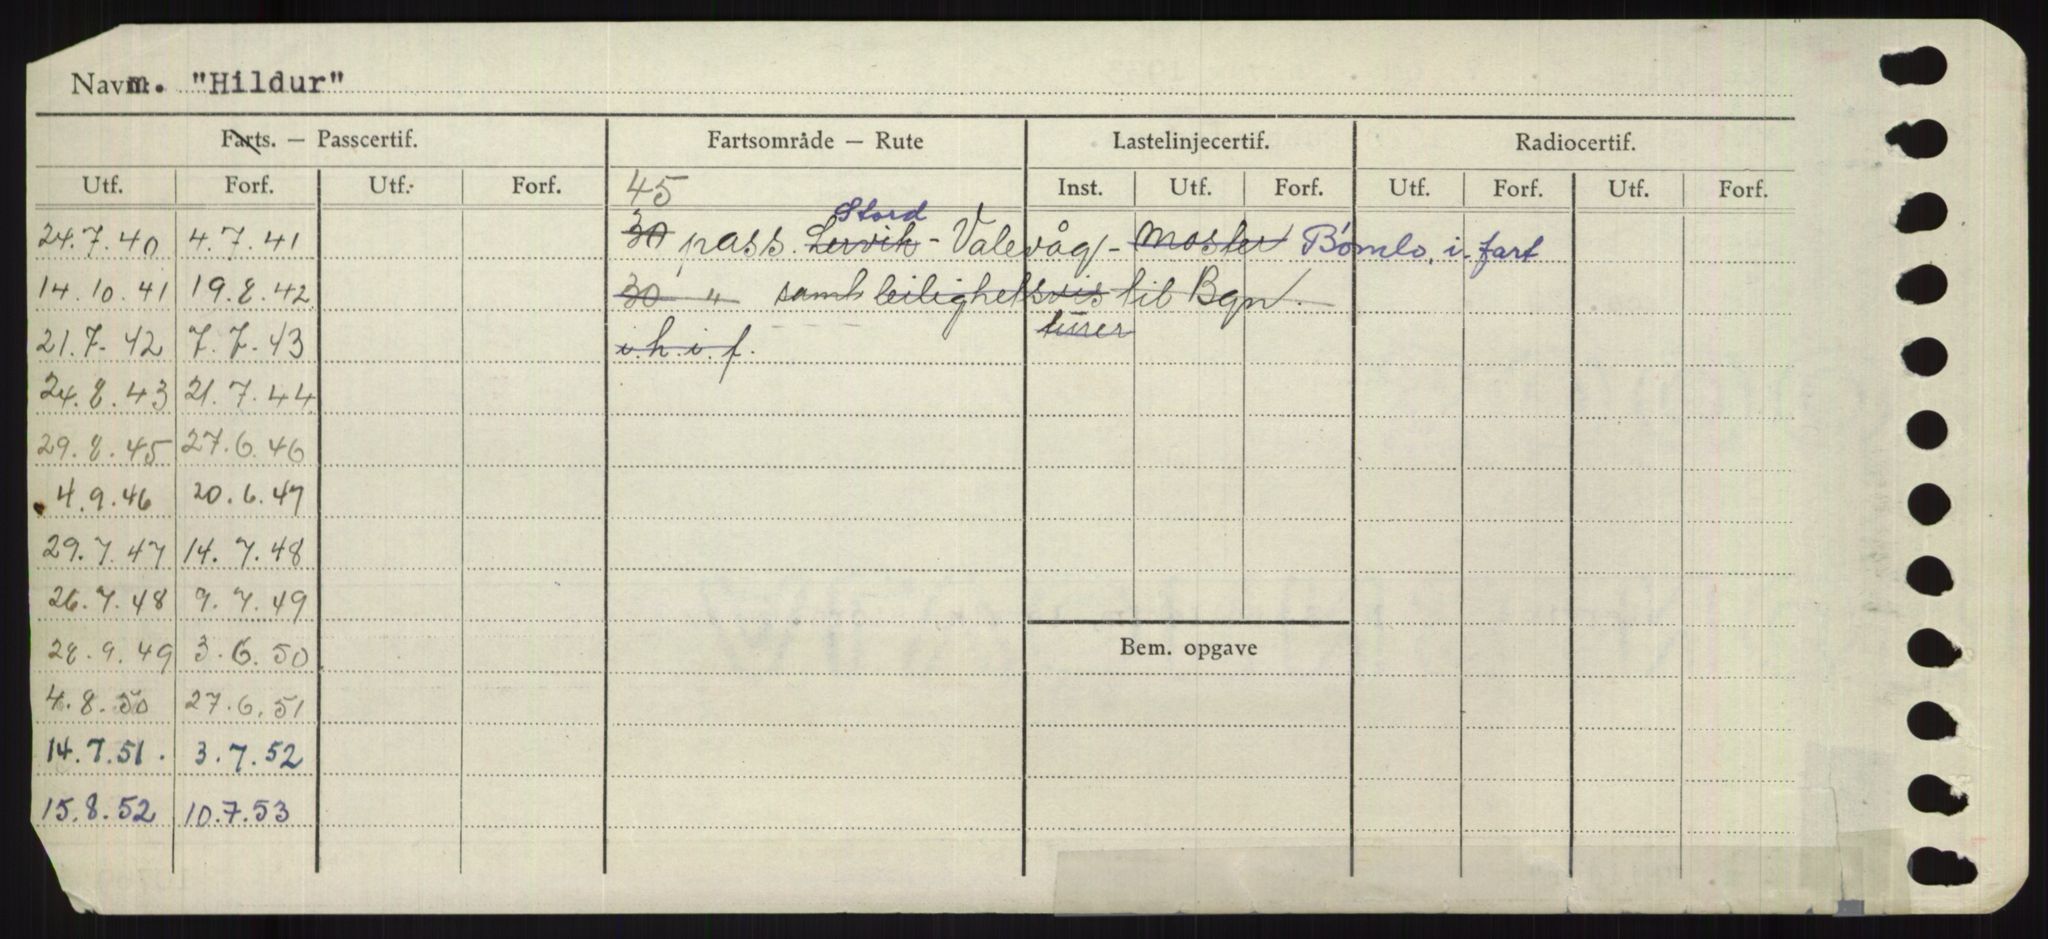 Navn. "Hildur"
Farts. — Passcertif. Fartsområde — Rute Lastelinjecertif. Radiocertif.
Utf. Forf. Utf. Forf. 45 Inst. Utf. Forf. Utf. Forf. Utf. Forf.
Stord
24.7.40 4.7.41 30 pass. Lervik - Valevåg - Moster Bømlo, i fart
14.10.41 19.8.42 30 " samt leilighetsvis til Bgn.
turer
21.7.42 7.7.43 i.h.i.f.
24.8.43 21.7.44
29.8.45 27.6.46
4.9.46 20.6.47
29.7.47 14.7.48
26.7.48 9.7.49
28.9.49 3.6.50
Bem. opgave
4.8.50 27.6.51
14.7.51. 3.7.52
15.8.52 10.7.53